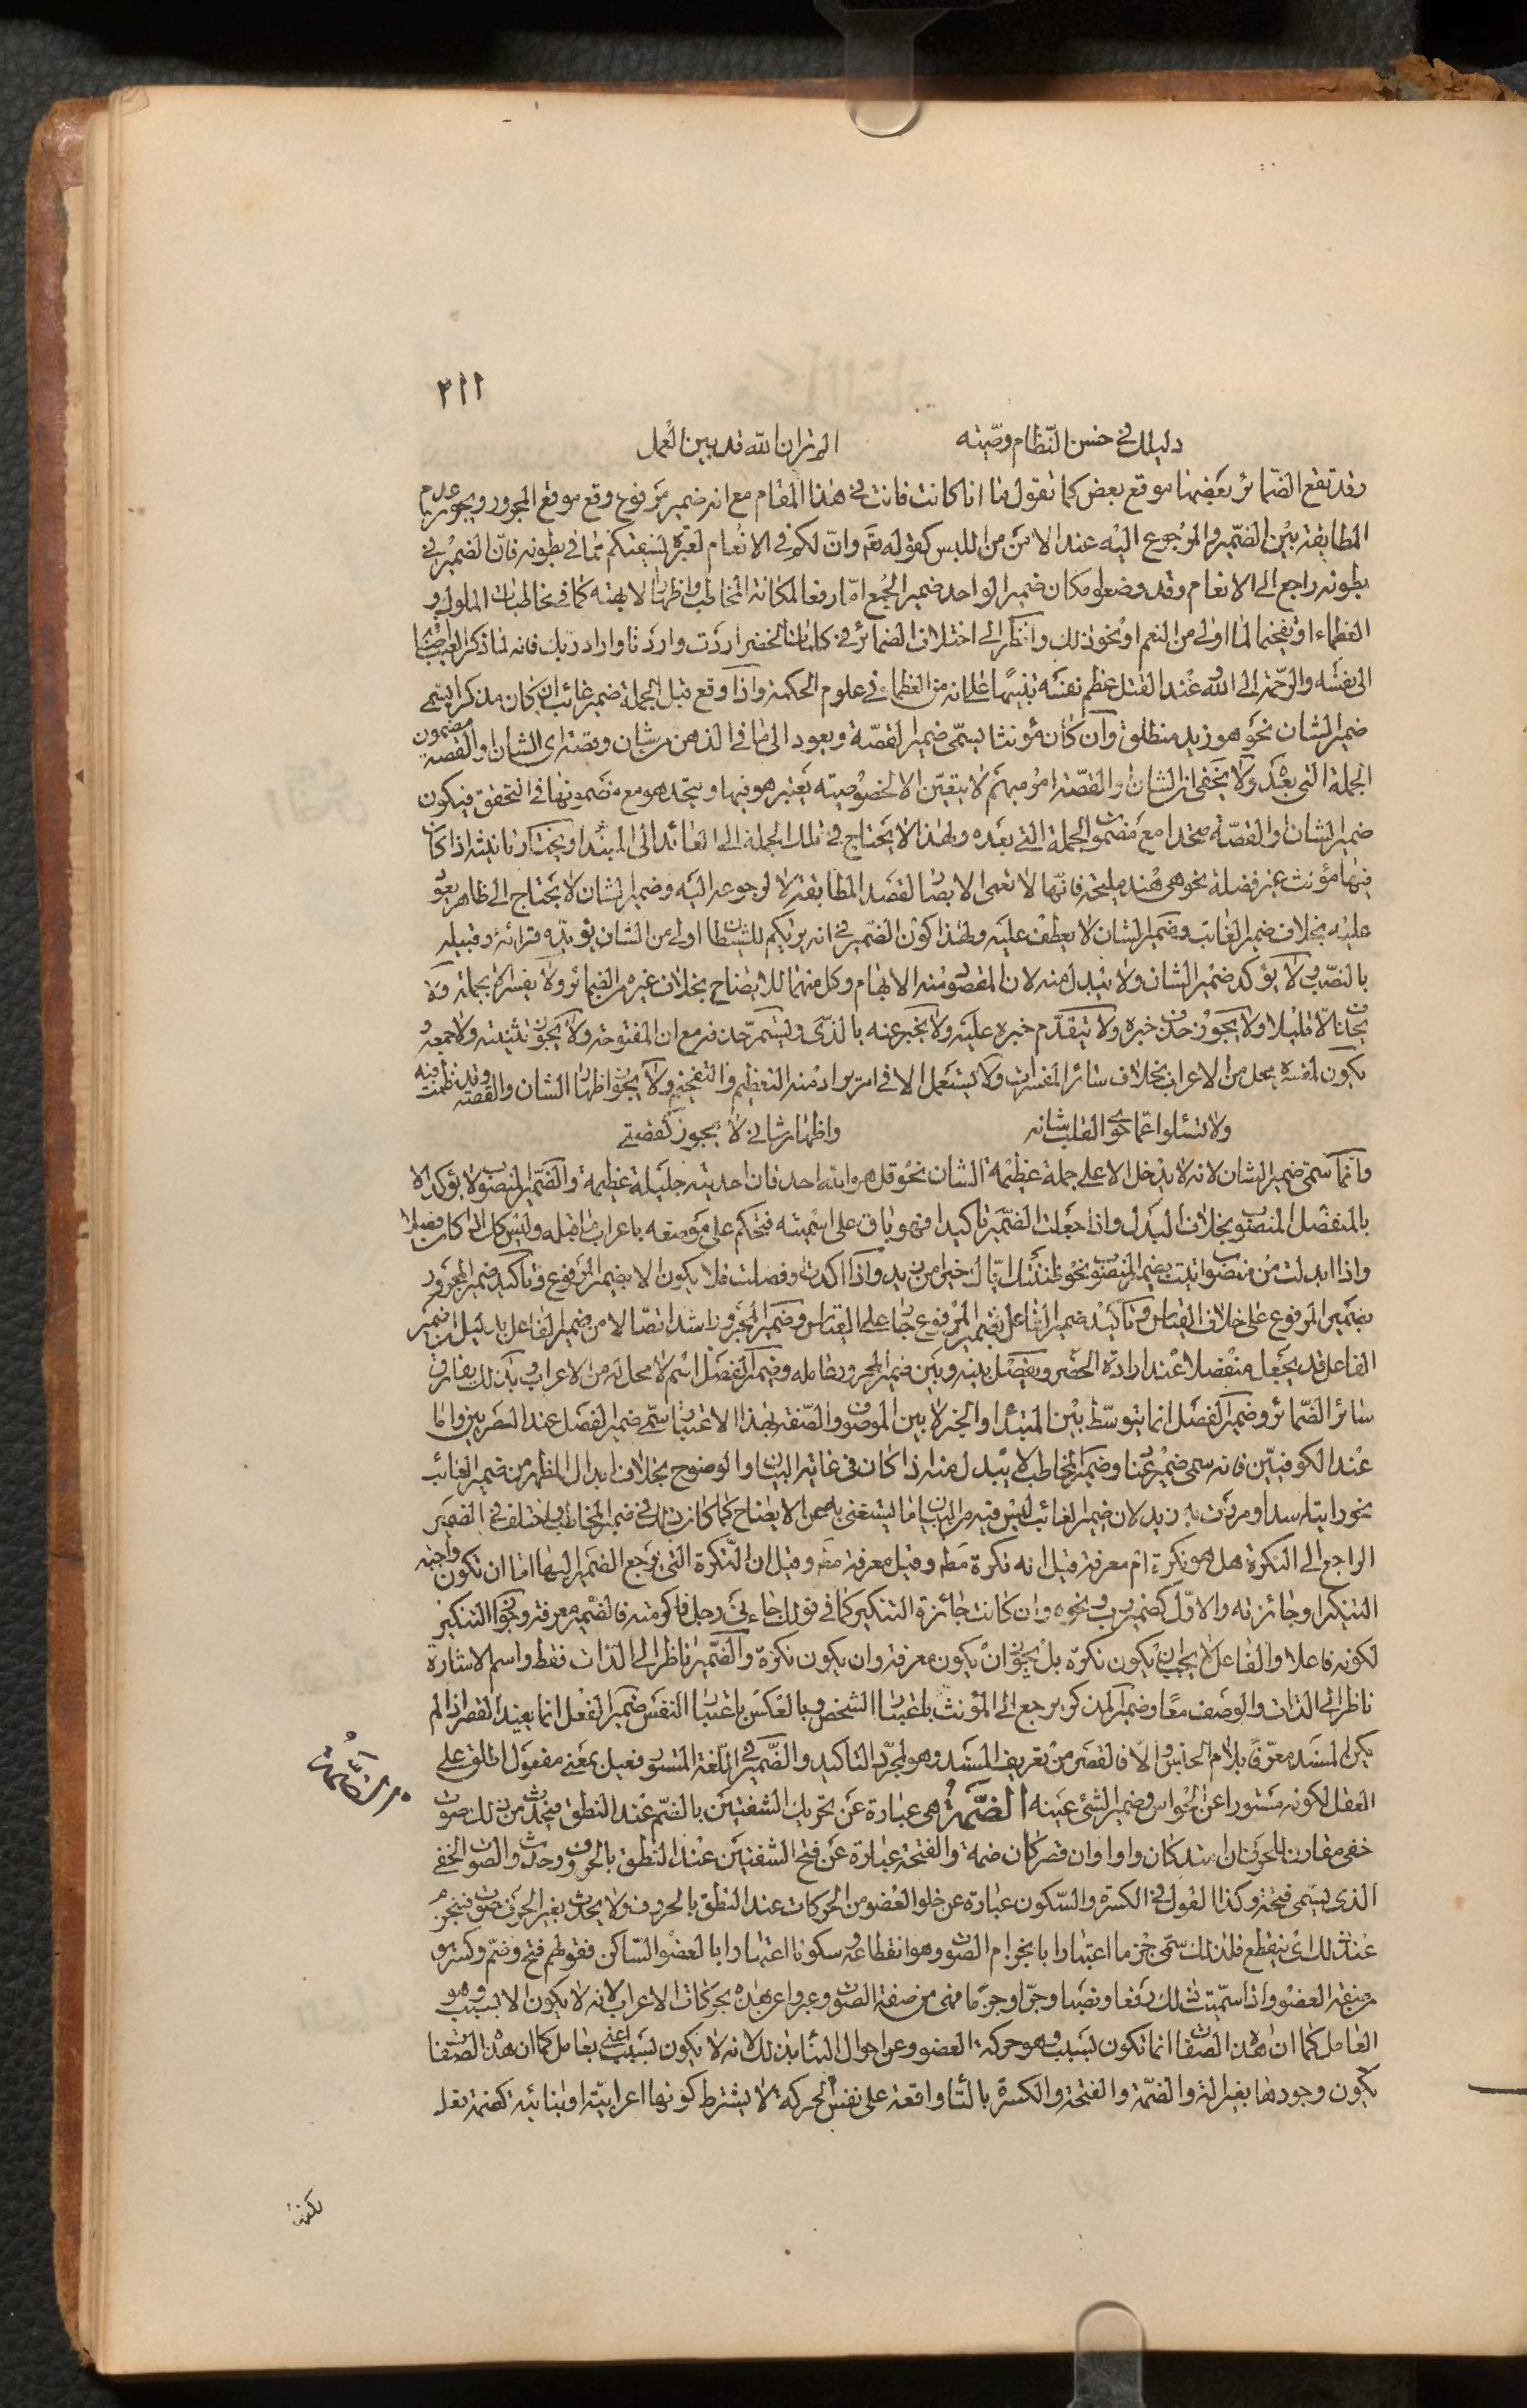 ٣١١
دليلك في حسن النظام وصيته الم تر ان الله قد بين العمل
وقد تقع الضمائر بعضها موقع بعض كما تقول ما انا كانت فانت في هذا المقام مع انه ضمير مرفوع وقع موقع المجرور ويجوز عدم
المطابقة بين الضمير والمرجوع اليه عند الامن من اللبس كقوله تعم وان لكم في الانعام لعبرة نسقيكم مما في بطونه فان الضمير في
بطونه راجع الى الانعام وقد وضعوا مكان ضمير الواحد ضمير الجمع اما رفعا لمكانة المخاطب واظهارا لابهته كما في مخاطبات الملوك و
العظماء او تفخيما لما اولى من النعم او نحو ذلك وانظر الى اختلاف الضمائر في كلمات الخضر اردت واردنا واراد ربك فانه لما ذكر العيب اضافها
الى نفسه والرحمة الى الله عند القتل عظم نفسه تنبيها على انه من العظماء في علوم الحكمة واذا وقع قبل الجملة ضمير غائب ان كان مذكرا يسمى
ضمير الشان نحو هو زيد منطلق وان كان مؤنثا يسمى ضمير القصة ويعود الى ما في الذهن من شان وقصة اى الشان او القصة مضمون
الجملة التي بعده ولا يخفى ان الشان والقصة امر مبهم لا يتعين الا لخصوصيته يعتبر هو فيها ويتحد هو مع مضمونها في التحقق فيكون
ضمير الشان والقصة متحدا مع مضمون الجملة التي بعده ولهذا لا يحتاج في تلك الجملة الى العائد الى المبتدا ويختار تانيثه اذا كان
فيها مؤنث غير فضلة نحو هي هند مليحة فانها لا تعمى الابصار لقصد المطابقة لا لرجوعه اليه وضمير الشان لا يحتاج الى ظاهر يعود
عليه بخلاف ضمير الغائب وضمير الشان لا يعطف عليه ولهذا كون الضمير في انه يريكم للشيطان اولى من الشان يؤيده قرائة وقبيله
بالنصب ولا يؤكد ضمير الشان ولا يبدل منه لان المقصود منه الابهام وكل منهما للايضاح بخلاف غيره من الضمائر ولا يفسر الا بجملة ولا
يحذف الا قليلا ولا يجوز حذف خبره ولا يتقدم خبره عليه ولا يخبر عنه بالذى ويستمر حذفه مع ان المفتوحة ولا يجوز تثنيته ولا جمعه
يكون لمفسره محل من الاعراب بخلاف سائر المفسرات ولا يستعمل الا في امر يراد منه التعظيم والتفخيم ولا يجوز اظهار الشان والقصة وقد نظمت فيه
ولا تسئلوا عما حوى القلب شانه واظهار شانى لا يجوز كقصتى
وانما سمى ضمير الشان لانه لا يدخل الا على جملة عظيمة الشان نحو قل هو الله احد فان احديته جليلة عظيمة والضمير المنصوب لا يؤكد الا
بالمنفصل المنصوب بخلاف البدل واذا جعلت الضمير تاكيدا فهو باق على اسميته فتحكم على موضعه باعراب ما قبله وليس كل ان كان فصلا
واذا ابدلت من منصوب اتيت بضمير المنصوب نحو ظننتك اياك خيرا من زيد واذا اكدت وفصلت فلا يكون الا بضمير المرفوع وتاكيد ضمير المجرور
بضمير المرفوع على خلاف القياس وتاكيد ضمير الفاعل بضمير المرفوع جار على القياس وضمير المجرور اشد اتصالا من ضمير الفاعل بدليل ان ضمير
الفاعل قد يجعل منفصلا عند ارادة الحصر ويفصل بينه وبين ضمير المجرور بعامله وضمير الفصل اسم لا محل له من الاعراب وبذلك يفارق
سائر الضمائر وضمير الفصل انما يتوسط بين المبتدا والخبر لا بين الموصوف والصفة بهذا الاعتبار سمى ضمير الفصل عند البصريين واما
عند الكوفيين فانه سمى ضمير عماد وضمير المخاطب لا يبدل منه اذا كان في غاية البيان والوضوح بخلاف ابدال المظهر من ضمير الغائب
نحو رايته اسدا ومررت به زيد لان ضمير الغائب ليس فيه من البيان ما يستغنى به عن الايضاح كما كان ذلك في ضمير المخاطب واختلف في الضمير
الراجع الى النكرة هل هو نكرة ام معرفة قيل انه نكرة مط وقيل معرفة مط وقيل ان النكرة التي يرجع الضمير اليها اما ان تكون واجبة
التنكير او جائزته والاول كضمير رب ونحوه وان كانت جائزة التنكير كما في قولك جاءنى رجل فاكرمته فالضمير معرفة وجواز التنكير
لكونه فاعلا والفاعل لا يجب ان يكون نكرة بل يجوز ان يكون معرفة وان يكون نكرة والضمير ناظر الى الذات فقط واسم الاشارة
ناظر الى الذات والوصف معا وضمير المذكر يرجع الى المؤنث باعتبار الشخص وبالعكس باعتبار النفس ضمير الفصل انما يفيد القصر اذا لم
يكن المسند معرفا بلام الجنس والا فالقصر من تعريف المسند وهو لمجرد التاكيد والضمير في اللغة المستور فعيل بمعنى مفعول اطلق على
العقل لكونه مستورا عن الحواس وضمير الشئ عينه الضمة هى عبارة عن تحريك الشفتين بالضم عند النطق فيحدث من ذلك صوت
خفى مقارن للحرف ان امتد كان واوا وان قصر كان ضمة والفتحة عبارة عن فتح الشفتين عند النطق بالحروف وحدوث الصوت الخفى
الذى يسمى فتحة وكذا القول في الكسرة والسكون عبارة عن خلو العضو من الحركات عند النطق بالحروف ولا يحدث بغير الحرف صوت فينجزم
عند ذلك اى ينقطع فلذلك سمى جزما اعتبارا بانجزام الصوت وهو انقطاعه وسكونا اعتبارا بالعضو الساكن فقولهم فتح وضم وكسر هو
من صفة العضو واذا سميت ذلك رفعا ونصبا وجرا وجزما فهى من صفة الصوت وعبروا عن هذه بحركات الاعراب لانه لا يكون الا بسبب وهو
العامل كما ان هذه الصفات انما تكون بسبب وهو حركة العضو وعن احوال البناء بذلك لانه لا يكون بسبب اعنى بعامل كما ان هذه الصفات
يكون وجودها بغير الة والضمة والفتحة والكسرة بالتاء واقعة على نفس الحركة لا يشترط كونها اعرابية او بنائية كضمة نعل
الضمة
لكنها